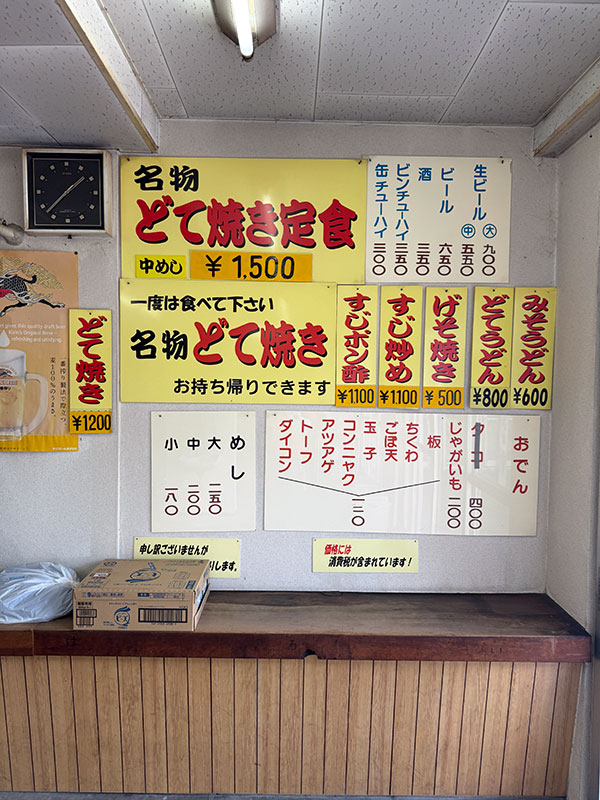 名物
どて焼き定食
中めし ¥1,500
生ビール 大 九〇〇
中 五五〇
ビール 六五〇
酒 三五〇
ビンチューハイ 三五〇
缶チューハイ 三〇〇
一度は食べて下さい
名物 どて焼き
お持ち帰りできます
みそうどん ¥600
どてうどん ¥800
げそ焼き ¥500
すじ炒め ¥1,100
すじポン酢 ¥1,100
どて焼き ¥1200
一番搾り製法で際立つ、
麦100%のうまさ。
おでん
タコ 四〇〇
じゃがいも 二〇〇
板
ちくわ
ごぼ天
玉子
コンニャク
アツアゲ
トーフ
ダイコン
一二〇
めし
大 二五〇
中 二〇〇
小 一八〇
申し訳ございませんが
します。
価格には
消費税が含まれています!